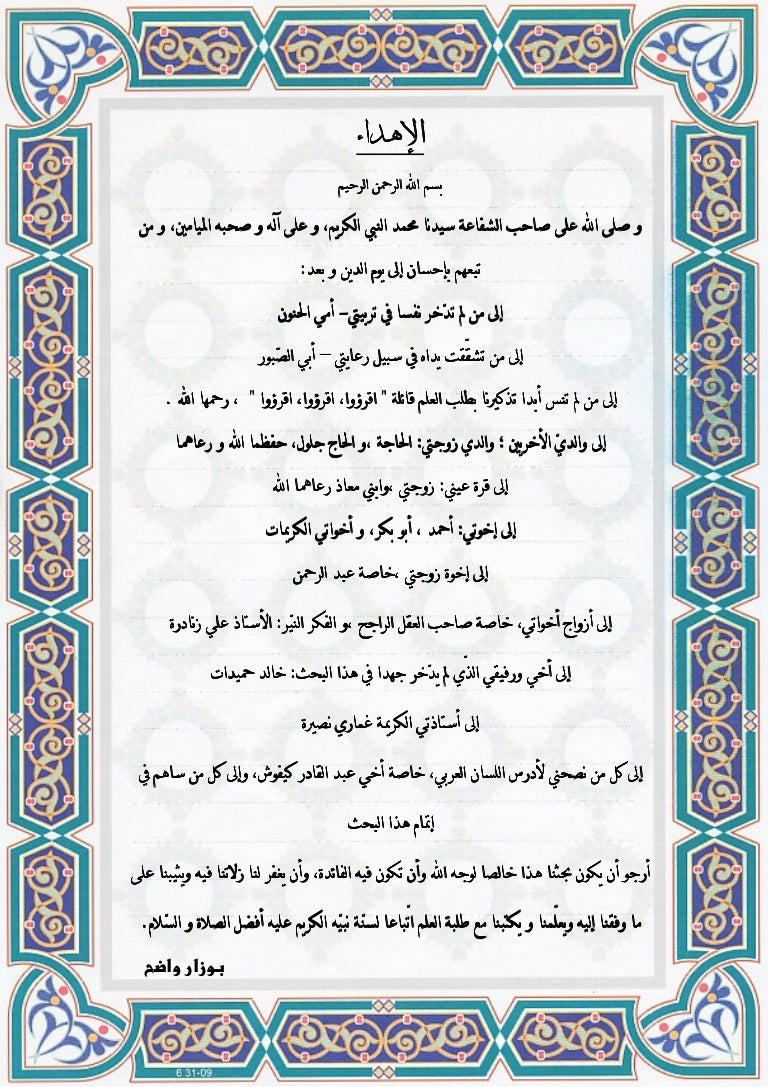 الإهداء
بسم الله الرحمن الرحيم
و صلى الله على صاحب الشفاعة سيدنا محمد النبي الكريم، و على آله و صحبه الميامين، و من
تبعهم بإحسان إلى يوم الدين و بعد:
إلى من لم تدّخر نفسا في تربيتي– أمي الحنون
إلى من تشقّقت يداه في سبيل رعايتي – أبي الصّبور
إلى من لم تنس أبدا تذكيرنا بطلب العلم قائلة " اقرؤوا، اقرؤوا، اقرؤوا " ، رحمها الله .
إلى والديّ الأخريين ؛ والدي زوجتي: الحاجة ،و الحاج جلول، حفظما الله و رعاهما
إلى قرة عيني: زوجتي ،وابني معاذ رعاهما الله
إلى إخوتي: أحمد ، أبو بكر، و أخواتي الكريمات
إلى إخوة زوجتي ،خاصة عبد الرحمن
إلى أزواج أخواتي، خاصة صاحب العقل الراجح ،و الفكر النيّر: الأستاذ علي زنادرة
إلى أخي ورفيقي الذّي لم يدّخر جهدا في هذا البحث: خالد حميدات
إلى أستاذتي الكريمة غماري نصيرة
إلى كل من نصحني لأدرس اللسان العربي، خاصة أخي عبد القادر كيفوش، وإلى كل من ساهم في
إتمام هذا البحث
أرجو أن يكون بحثنا هذا خالصا لوجه الله وأن تكون فيه الفائدة، وأن يغفر لنا زلاتنا فيه ويثيبنا على
ما وفقنا إليه ويعلّمنا و يكتبنا مع طلبة العلم اتّباعا لسنّة نبيّه الكريم عليه أفضل الصلاة و السّلام.
بوزار واضح
6 31-09